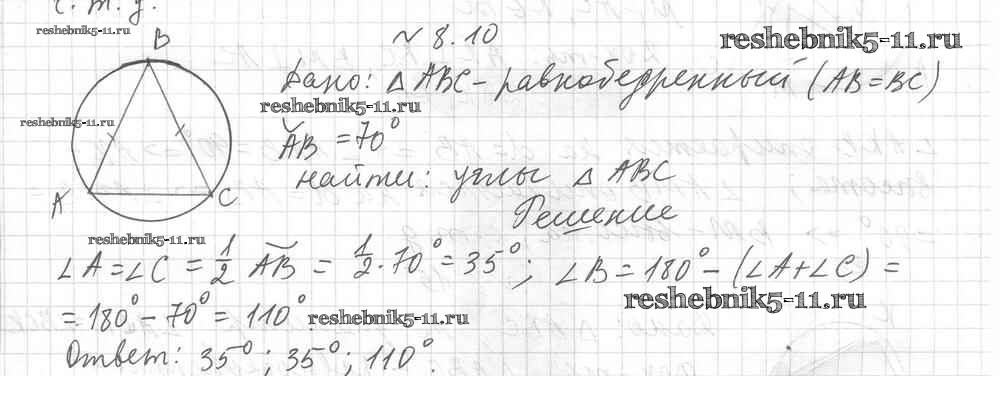 ч. т. д.
reshebnik5-11.ru
№ 8.10
reshebnik5-11.ru
B
Дано: △ ABC - равнобедренный (AB=BC)
reshebnik5-11.ru
reshebnik5-11.ru
AB = 70°
найти: углы △ ABC
A
C
Решение
reshebnik5-11.ru
∠A = ∠C = 1/2 AB = 1/2 · 70° = 35°; ∠B = 180° - (∠A+∠C) =
reshebnik5-11.ru
= 180° - 70° = 110°.
reshebnik5-11.ru
Ответ: 35°; 35°; 110°.